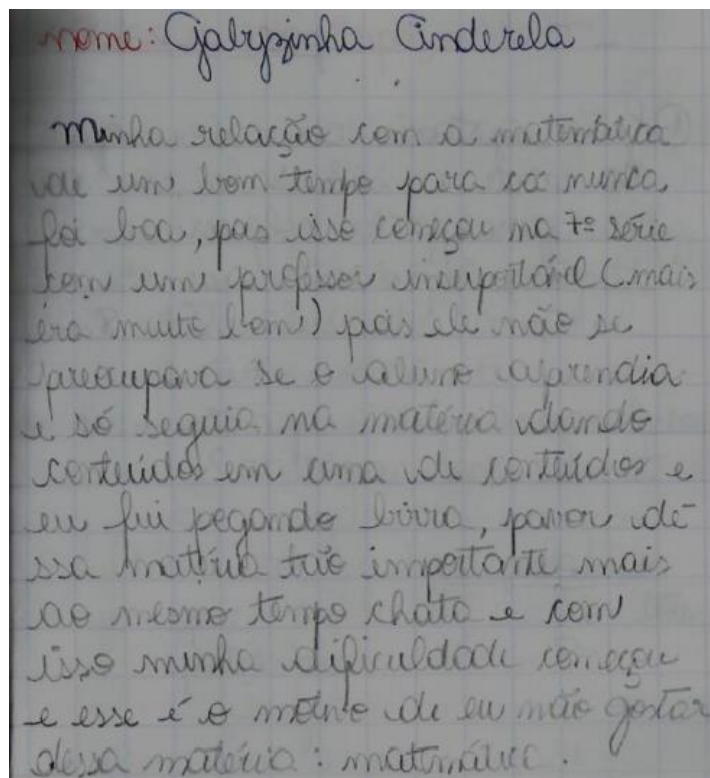 nome: Gabyzinha Cinderela
Minha relação com a matemática
de um bom tempo para cá nunca
foi boa, pois isso começou na 7º série
com um professor insuportável (mais
era muito bom) pois ele não se
preocupava se o aluno aprendia
e só seguia na matéria dando
conteúdos em cima de conteúdos e
eu fui pegando birra, pavor de
ssa matéria tão importante mais
ao mesmo tempo chato e com
isso minha dificuldade começou
e esse é o motivo de eu não gostar
dessa matéria: matemática.